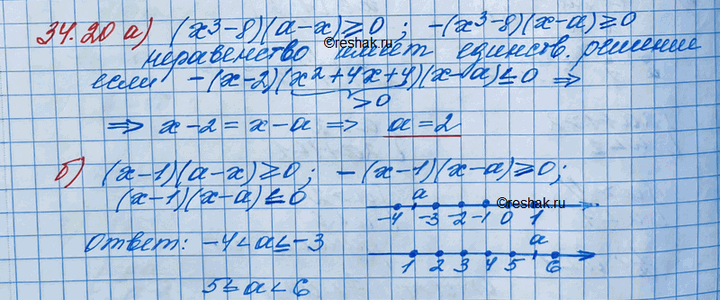 34.20 а) (x³-8)(a-x)≥0 ; -(x³-8)(x-a)≥0
неравенство имеет единств. решение
©reshak.ru
если -(x-2)(x²+4x+4)(x-a)≤0 ⇒
>0
⇒ x-2=x-a ⇒ a=2
б) (x-1)(a-x)≥0; -(x-1)(x-a)≥0;
(x-1)(x-a)≤0
a ©reshak.ru
-4 -3 -2 -1 0 1
Ответ: -4<a≤-3
a
1 2 3 4 5 6
5≤a<6